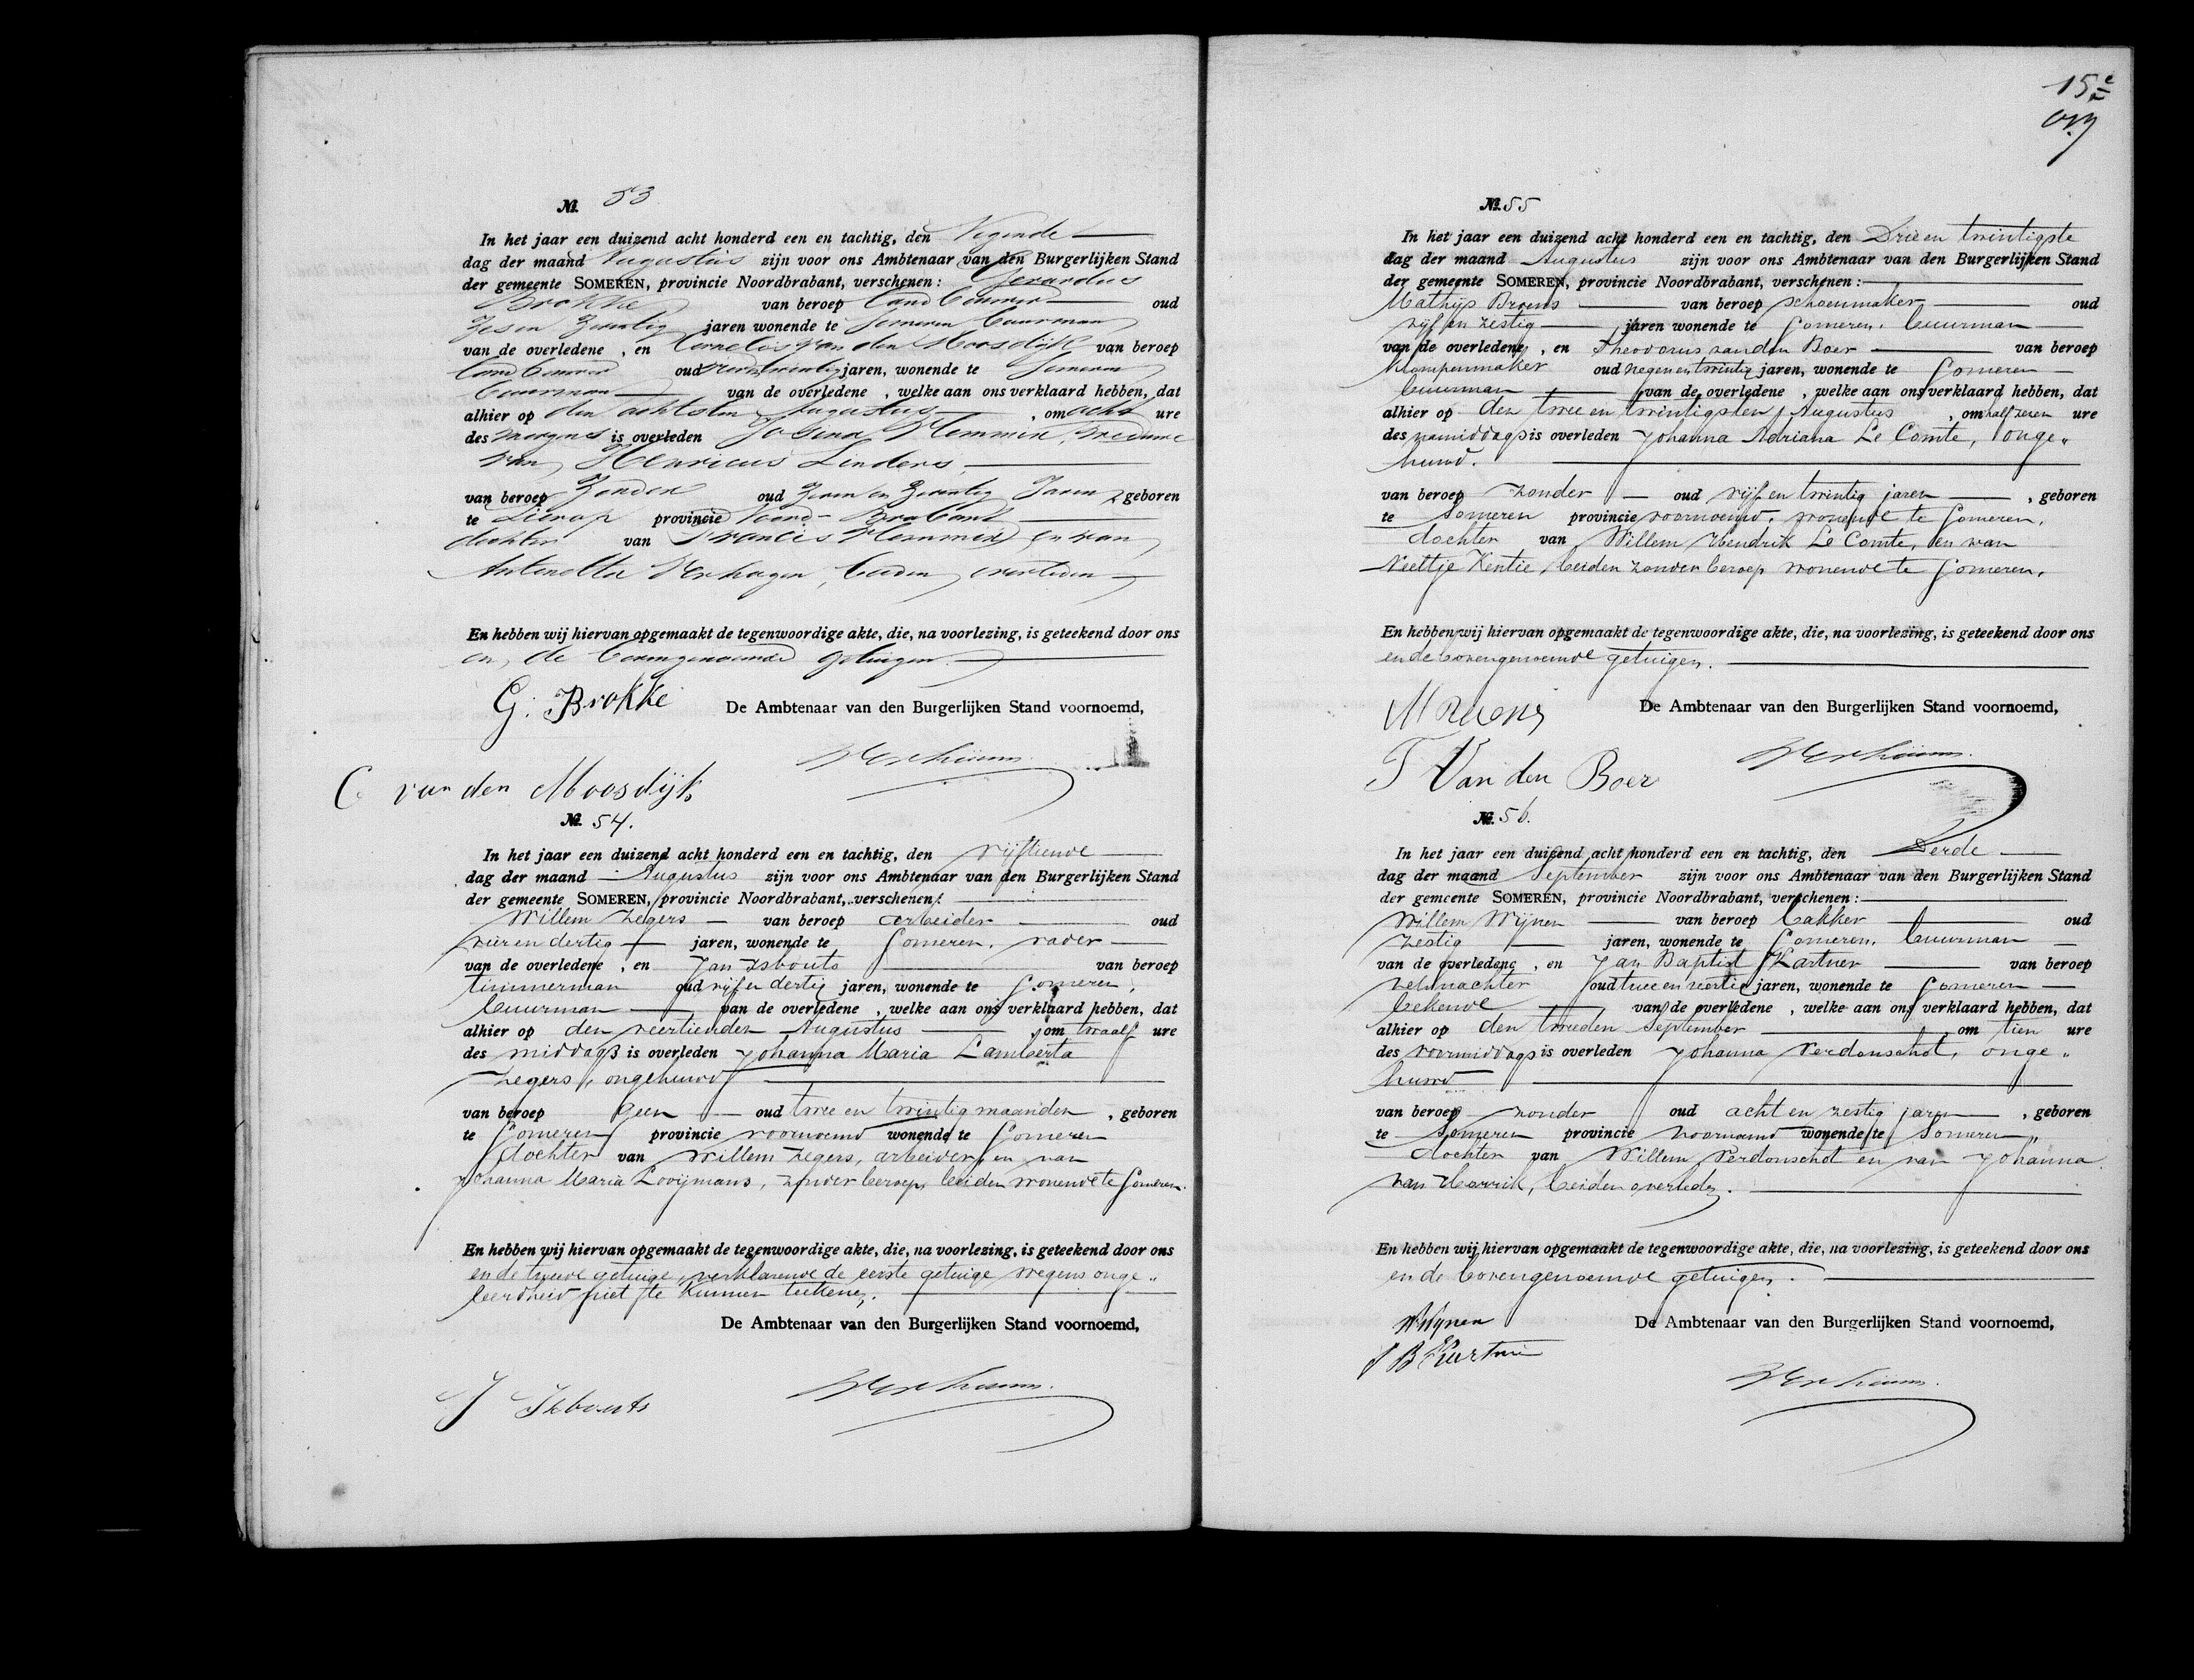 15e
№ 53
In het jaar een duizend acht honderd een en tachtig, den Negende
dag der maand Augustus zijn voor ons Ambtenaar van den Burgerlijken Stand
der gemeente SOMEREN, provincie Noordbrabant, verschenen: Gerardus
Brokke van beroep landbouwer oud
Zes en Zeventig jaren wonende te Someren buurman
van de overledene , en Cornelis van den Moosdijk van beroep
landbouwer oud jaren, wonende te Someren
buurman van de overledene , welke aan ons verklaard hebben, dat
alhier op den achtsten Augustus , om acht ure
des morgens is overleden Josina Klemmix, weduwe
van Henricus Linders
van beroep Zonder oud Zeven en Zeventig Jaren , geboren
te Lierop provincie Noord-Brabant
dochter van Francis Klemmix en van
Antonetta Verhagen, beiden overleden
En hebben wij hiervan opgemaakt de tegenwoordige akte, die, na voorlezing, is geteekend door ons
en de bovengenoemde getuigen.
G. Brokke De Ambtenaar van den Burgerlijken Stand voornoemd,
C van den Moosdijk
№ 54.
In het jaar een duizend acht honderd een en tachtig, den vijftiende
dag der maand Augustus zijn voor ons Ambtenaar van den Burgerlijken Stand
der gemeente SOMEREN, provincie Noordbrabant, verschenen:
Willem Zegers van beroep arbeider oud
vier en dertig jaren, wonende te Someren, vader
van de overledene , en Jan Isbouts van beroep
timmerman oud vijf en dertig jaren, wonende te Someren,
buurman van de overledene , welke aan ons verklaard hebben, dat
alhier op den veertienden Augustus , om twaalf ure
des middags is overleden Johanna Maria Lamberta
Zegers, ongehuwd
van beroep geen oud twee en twintig maanden , geboren
te Someren provincie voornoemd wonende te Someren
dochter van Willem Zegers, arbeider, en van
Johanna Maria Looijmans, zonder beroep, beiden wonende te Someren.
En hebben wij hiervan opgemaakt de tegenwoordige akte, die, na voorlezing, is geteekend door ons
en de tweede getuige, verklarende de eerste getuige wegens onge„
leerdheid niet te kunnen teekenen.
De Ambtenaar van den Burgerlijken Stand voornoemd,
J Isbouts
№ 55
In het jaar een duizend acht honderd een en tachtig, den Drie en twintigste
dag der maand Augustus zijn voor ons Ambtenaar van den Burgerlijken Stand
der gemeente SOMEREN, provincie Noordbrabant, verschenen:
Mathijs van beroep schoenmaker oud
vijf en zestig jaren wonende te Someren, buurman
van de overledene , en Theodorus van den Boer van beroep
klompenmaker oud negen en twintig jaren, wonende te Someren
buurman van de overledene , welke aan ons verklaard hebben, dat
alhier op den twee en twintigsten Augustus , om half zeven ure
des namiddags is overleden Johanna Adriana Le Comte, onge„
huwd.
van beroep zonder oud vijf en twintig jaren , geboren
te Someren provincie voornoemd, wonende te Someren,
dochter van Willem Hendrik Le Comte, en van
Neeltje Kentie, beiden zonder beroep wonende te Someren,
En hebben wij hiervan opgemaakt de tegenwoordige akte, die, na voorlezing, is geteekend door ons
en de bovengenoemde getuigen.
De Ambtenaar van den Burgerlijken Stand voornoemd,
T Van den Boer
№ 56.
In het jaar een duizend acht honderd een en tachtig, den Derde
dag der maand September zijn voor ons Ambtenaar van den Burgerlijken Stand
der gemeente SOMEREN, provincie Noordbrabant, verschenen:
Willem Wijnen van beroep bakker oud
zestig jaren, wonende te Someren, buurman
van de overledene , en Jan Baptist Kartner van beroep
veldwachter oud twee en veertig jaren, wonende te Someren
bekende van de overledene , welke aan ons verklaard hebben, dat
alhier op den tweeden September om tien ure
des voormiddags is overleden Johanna Verdonschot, onge„
huwd
van beroep zonder oud acht en zestig jaren , geboren
te Someren provincie voornoemd wonende te Someren„
dochter van Willem Verdonschot en van Johanna
van , beiden overleden.
En hebben wij hiervan opgemaakt de tegenwoordige akte, die, na voorlezing, is geteekend door ons
en de bovengenoemde getuigen.
W Wijnen De Ambtenaar van den Burgerlijken Stand voornoemd,
J B Kartner